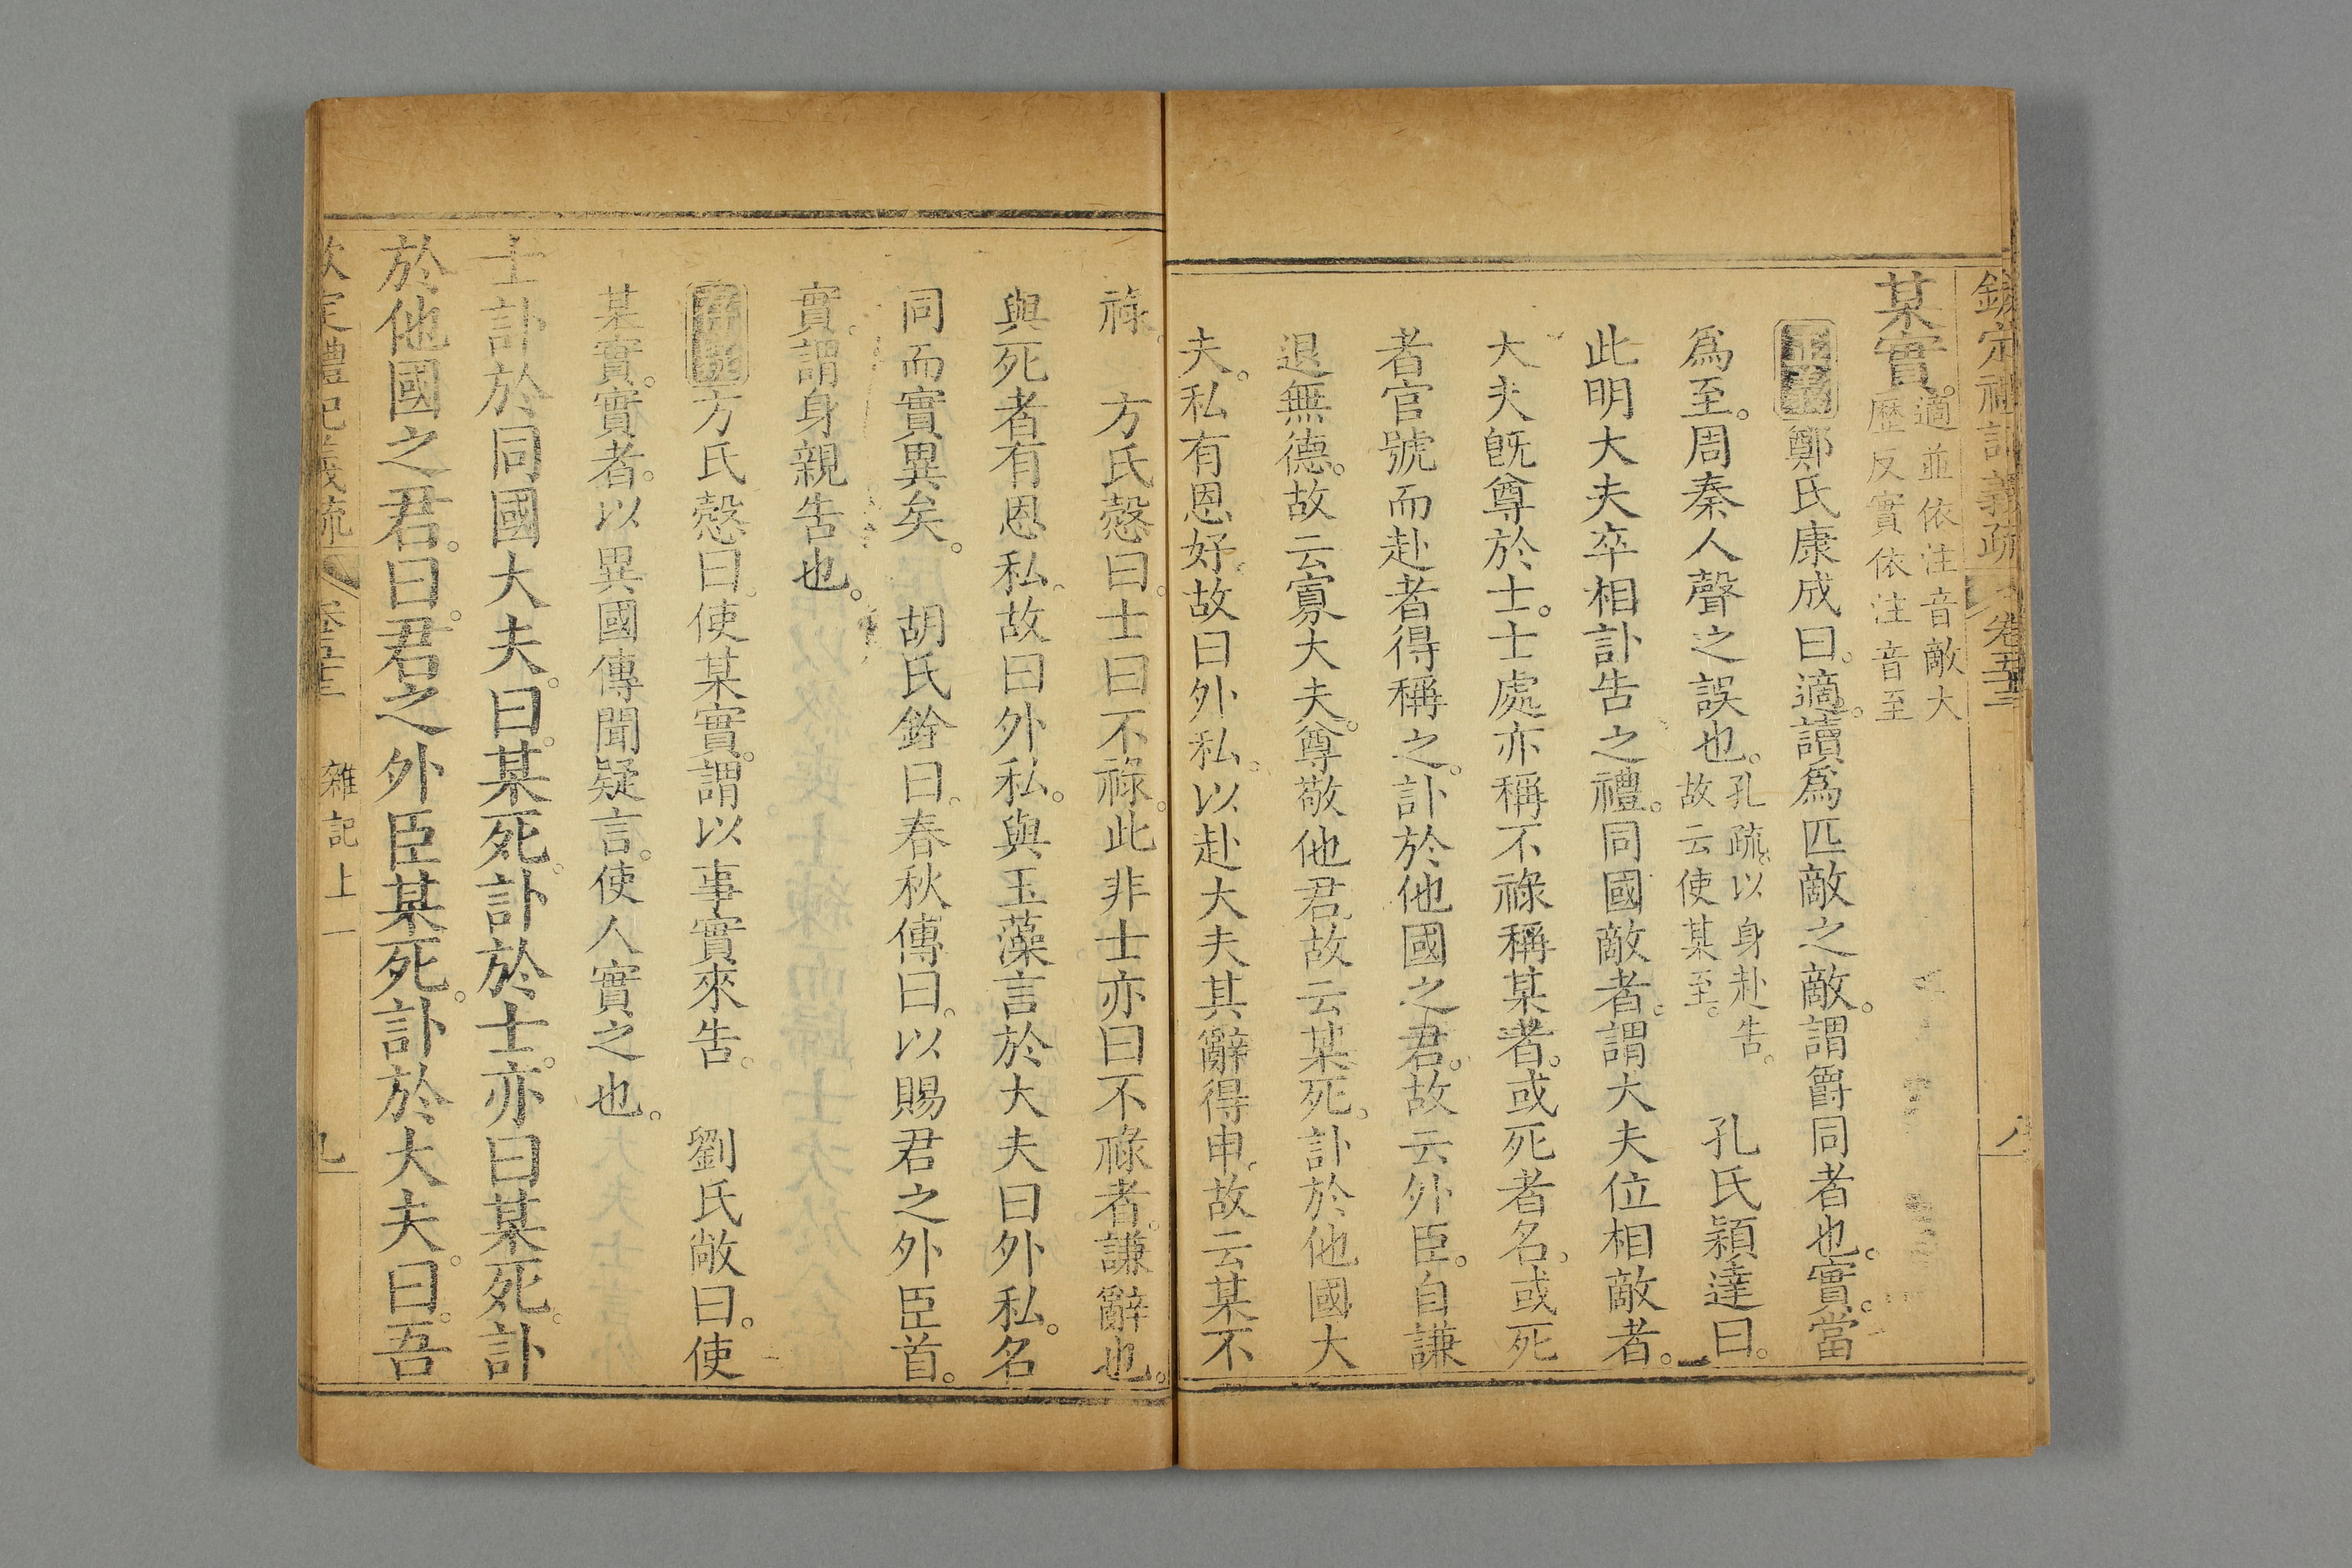 欽定禮記義疏 卷五十三
某實。適並依注音敵大
歷反實依注音至
正義 鄭氏康成曰。適。讀爲匹敵之敵。謂爵同者也。實。當
爲至。周秦人聲之誤也。孔疏。以身赴告。
故云使某至。 孔氏穎達曰。
此明大夫卒相訃告之禮。同國敵者。謂大夫位相敵者。
大夫旣尊於士。士處亦稱不祿稱某者。或死者名。或死
者官號而赴者得稱之。訃於他國之君。故云外臣。自謙
退無德。故云寡大夫。尊敬他君。故云某死。訃於他國大
夫。私有恩好。故曰外私。以赴大夫其辭得申。故云某不
祿。 方氏慤曰。士曰不祿。此非士亦曰不祿者。謙辭也。
與死者有恩私。故曰外私。與玉藻言於大夫曰外私。名
同而實異矣。 胡氏銓曰。春秋傳曰。以賜君之外臣首。
實。謂身親告也。
方氏慤曰。使某實。謂以事實來告。 劉氏敞曰。使
某實。實者。以異國傳聞疑言。使人實之也。
士訃於同國大夫。曰。某死。訃於士。亦曰某死。訃
於他國之君。曰。君之外臣某死。訃於大夫。曰。吾
欽定禮記義疏 卷五十三 雜記上一 九